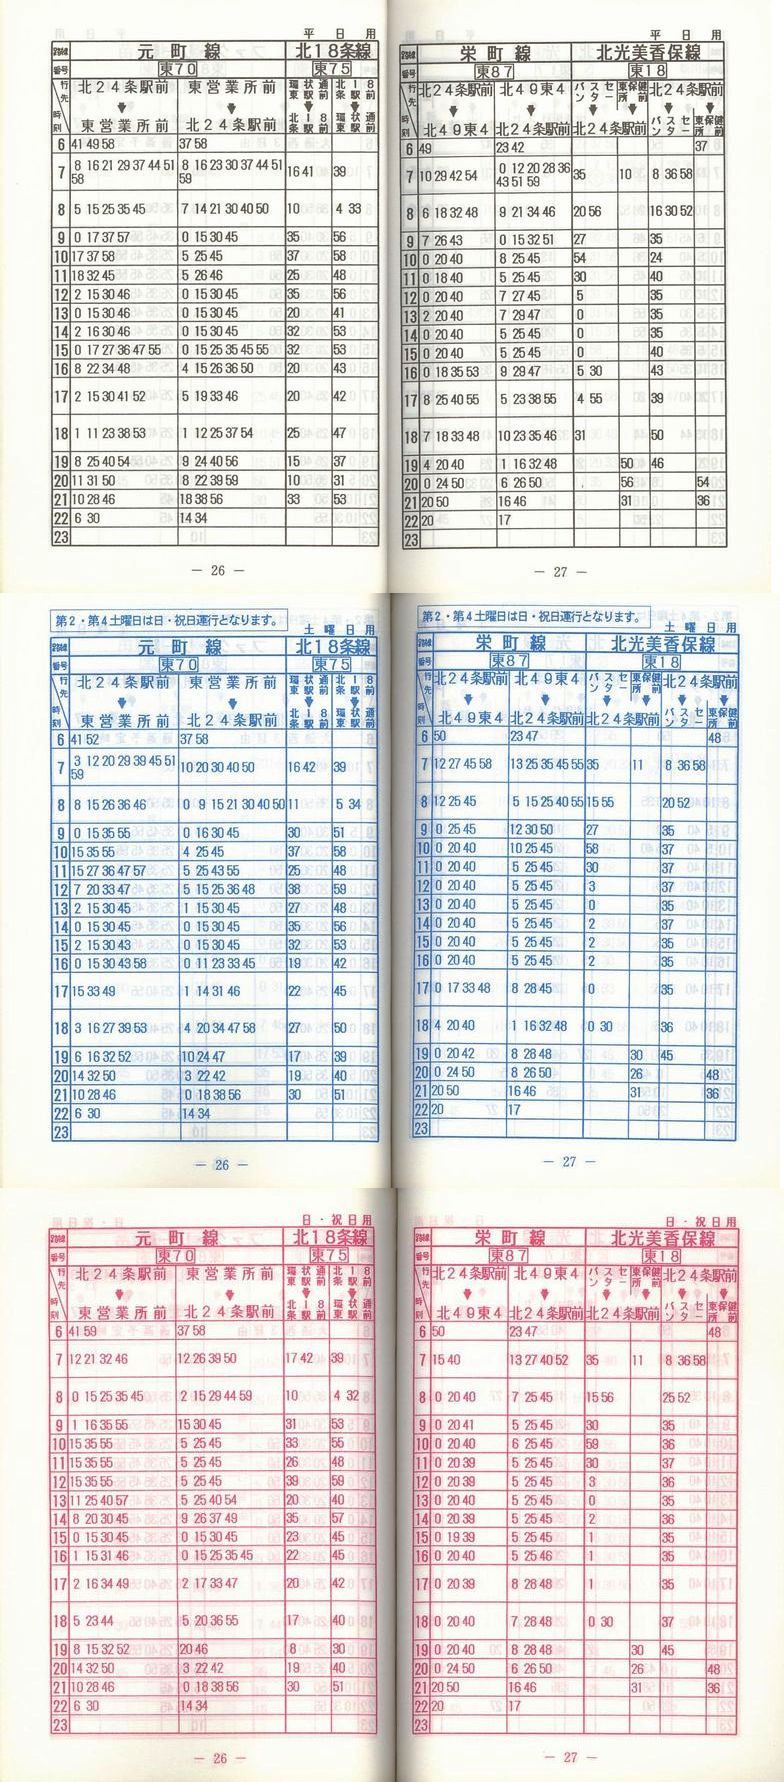 平日用
路線 元町線 北18条線
番号 東70 東75
行先 北24条駅前 東営業所前 環状通東駅前 北18条駅前
時刻 東営業所前 北24条駅前 北18条駅前 環状通東駅前
6 41 49 58 37 58
7 8 16 21 29 37 44 51 8 16 23 30 37 44 51 16 41 39
58 59
8 5 15 25 35 45 7 14 21 30 40 50 10 4 33
9 0 17 37 57 0 15 30 45 35 56
10 17 37 58 5 25 45 37 58
11 18 32 45 5 26 46 25 48
12 2 15 30 46 0 15 30 45 35 56
13 0 15 30 46 0 15 30 45 20 41
14 2 16 30 46 0 15 30 45 32 53
15 0 17 27 36 47 55 0 15 25 35 45 55 32 53
16 8 22 34 48 4 15 26 36 50 20 43
17 2 15 30 41 52 5 19 33 46 20 42
18 1 11 23 38 53 1 12 25 37 54 25 47
19 8 25 40 54 9 24 40 56 15 37
20 11 31 50 8 22 39 59 10 31
21 10 28 46 18 38 56 33 53
22 6 30 14 34
23
— 26 —
平日用
路線 栄町線 北光美香保線
番号 東87 東18
行先 北24条駅前 北49東4 バスセンター 東保健所前 北24条駅前
時刻 北49東4 北24条駅前 北24条駅前 バスセンター 東保健所前
6 49 23 42 37
7 10 29 42 54 0 12 20 28 36 35 10 8 36 58
43 51 59
8 6 18 32 48 9 21 34 46 20 56 16 30 52
9 7 26 43 0 15 32 51 27 35
10 0 20 40 8 25 45 54 24
11 0 18 40 5 25 45 30 40
12 0 20 40 7 27 45 5 35
13 2 20 40 7 29 47 0 35
14 0 20 40 5 25 45 0 35
15 0 20 40 5 25 45 0 40
16 0 18 35 53 9 29 47 5 30 43
17 8 25 40 55 5 23 38 55 4 55 39
18 7 18 33 48 10 23 35 46 31 50
19 4 20 40 1 16 32 48 50 46
20 0 24 50 6 26 50 56 54
21 20 50 16 46 31 36
22 20 17
23
— 27 —
第2・第4土曜日は日・祝日運行となります。
土曜日用
路線 元町線 北18条線
番号 東70 東75
行先 北24条駅前 東営業所前 環状通東駅前 北18条駅前
時刻 東営業所前 北24条駅前 北18条駅前 環状通東駅前
6 41 52 37 58
7 3 12 20 29 39 45 51 10 20 30 40 50 16 42 39
59
8 8 15 26 36 46 0 9 15 21 30 40 50 11 5 34
9 0 15 35 55 0 16 30 45 30 51
10 15 35 55 4 25 45 37 58
11 15 27 36 47 57 5 25 43 55 25 48
12 7 20 33 47 5 15 25 36 48 38 59
13 2 15 30 45 1 15 30 45 27 48
14 0 15 30 45 0 15 30 45 35 56
15 2 15 30 43 0 15 30 45 32 53
16 0 15 30 43 58 0 11 23 33 45 19 42
17 15 33 49 1 14 31 46 22 45
18 3 16 27 39 53 4 20 34 47 58 27 50
19 6 16 32 52 10 24 47 17 39
20 14 32 50 3 22 42 19 40
21 10 28 46 0 18 38 56 30 51
22 6 30 14 34
23
— 26 —
第2・第4土曜日は日・祝日運行となります。
土曜日用
路線 栄町線 北光美香保線
番号 東87 東18
行先 北24条駅前 北49東4 バスセンター 東保健所前 北24条駅前
時刻 北49東4 北24条駅前 北24条駅前 バスセンター 東保健所前
6 50 23 47 48
7 12 27 45 58 13 25 35 45 55 35 11 8 36 58
8 12 25 45 5 15 25 40 55 15 55 20 52
9 0 25 45 12 30 50 27 35
10 0 20 40 10 25 45 58 37
11 0 20 40 5 25 45 30 37
12 0 20 40 5 25 45 3 37
13 0 20 40 5 25 45 0 35
14 0 20 40 5 25 45 2 37
15 0 20 40 5 25 45 2 35
16 0 20 40 5 25 45 2 35
17 0 17 33 48 8 28 45 0 35
18 4 20 40 1 16 32 48 0 30 36
19 0 20 42 8 28 48 30 45
20 0 24 50 8 26 50 26 48
21 20 50 16 46 31 36
22 20 17
23
— 27 —
日・祝日用
路線 元町線 北18条線
番号 東70 東75
行先 北24条駅前 東営業所前 環状通東駅前 北18条駅前
時刻 東営業所前 北24条駅前 北18条駅前 環状通東駅前
6 41 59 37 58
7 12 21 32 46 12 26 39 50 17 42 39
8 0 15 25 35 45 2 15 29 44 59 10 4 32
9 1 16 35 55 15 30 45 31 53
10 15 35 55 5 25 45 33 55
11 15 35 55 5 25 45 26 48
12 15 35 55 5 25 45 39 59
13 11 25 40 57 5 25 40 54 20 40
14 8 20 30 45 9 26 37 49 35 57
15 0 15 30 45 0 15 30 45 23 45
16 1 15 31 46 0 15 25 35 45 22 45
17 2 16 34 49 2 17 33 47 20 42
18 5 23 44 5 20 36 55 17 40
19 8 15 32 52 20 46 8 30
20 14 32 50 3 22 42 19 40
21 10 28 46 0 18 38 56 30 51
22 6 30 14 34
23
— 26 —
日・祝日用
路線 栄町線 北光美香保線
番号 東87 東18
行先 北24条駅前 北49東4 バスセンター 東保健所前 北24条駅前
時刻 北49東4 北24条駅前 北24条駅前 バスセンター 東保健所前
6 50 23 47 48
7 15 40 13 27 40 52 35 11 8 36 58
8 0 20 40 7 25 45 15 56 25 52
9 0 20 41 5 25 45 30 35
10 0 20 40 6 25 45 59 36
11 0 20 39 5 25 45 30 37
12 0 20 39 5 25 45 3 36
13 0 20 40 5 25 45 0 35
14 0 20 39 5 25 45 2 36
15 0 19 39 5 25 45 1 35
16 0 20 40 5 25 46 1 35
17 0 20 39 8 28 48 1 35
18 0 20 40 7 28 48 0 30 37
19 0 20 40 8 28 48 30 45
20 0 24 50 6 26 50 26 48
21 20 50 16 46 31 36
22 20 17
23
— 27 —